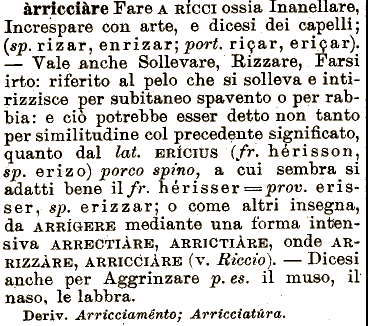 àrricciàre Fare A RÍCCI ossia Inanellare,
Increspare con arte, e dicesi dei capelli;
(sp. rizar, enrizar; port. riçar, eriçar).
— Vale anche Sollevare, Rizzare, Farsi
irto: riferito al pelo che si solleva e inti-
rizzisce per subitaneo spavento o per rab-
bia: e ciò potrebbe esser detto non tanto
per similitudine col precedente significato,
quanto dal lat. ERÍCIUS (fr. hérisson,
sp. erizo) porco spino, a cui sembra si
adatti bene il fr. hérisser = prov. eris-
ser, sp. erizzar; o come altri insegna,
da ARRÍGERE mediante una forma inten-
siva ARRECTIÀRE, ARRICTIÀRE, onde AR-
RIZZÀRE, ARRICCIÀRE (v. Riccio). — Dicesi
anche per Aggrinzare p. es. il muso, il
naso, le labbra.
Deriv. Arricciaménto; Arricciatúra.